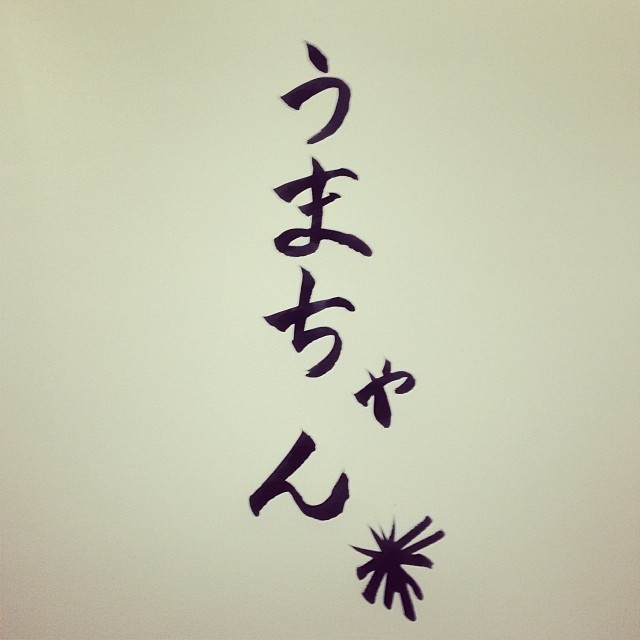 うまちゃん